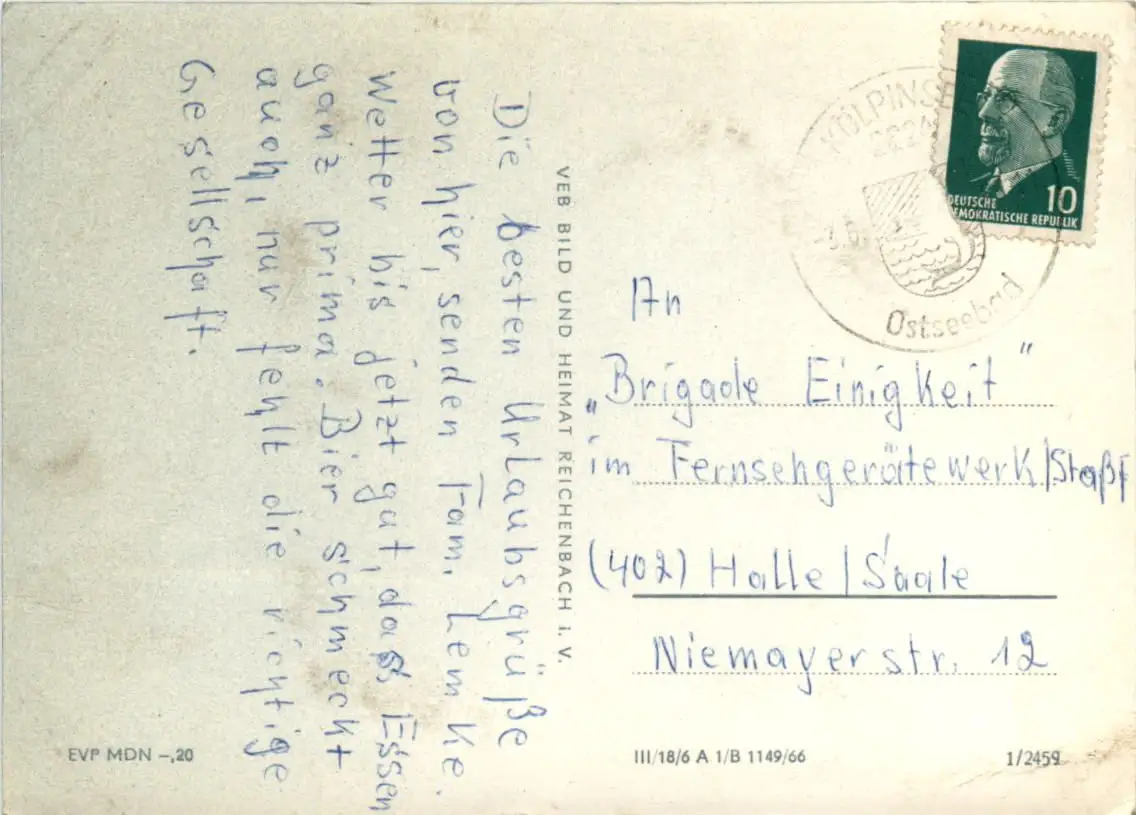 Die besten Urlaubsgrüße
von hier, senden Fam. Lemke.
Wetter bis jetzt gut, das Essen
ganz prima. Bier schmeckt
auch, nur fehlt die richtige
Gesellschaft.
VEB BILD UND HEIMAT REICHENBACH i. V.
EVP MDN –,20
Ostseebad
10
DEUTSCHE
DEMOKRATISCHE REPUBLIK
An
„Brigade Einigkeit"
im Fernsehgerätewerk/Staßf
(402) Halle/Saale
Niemayerstr. 12
III/18/6 A 1/B 1149/66
1/2459